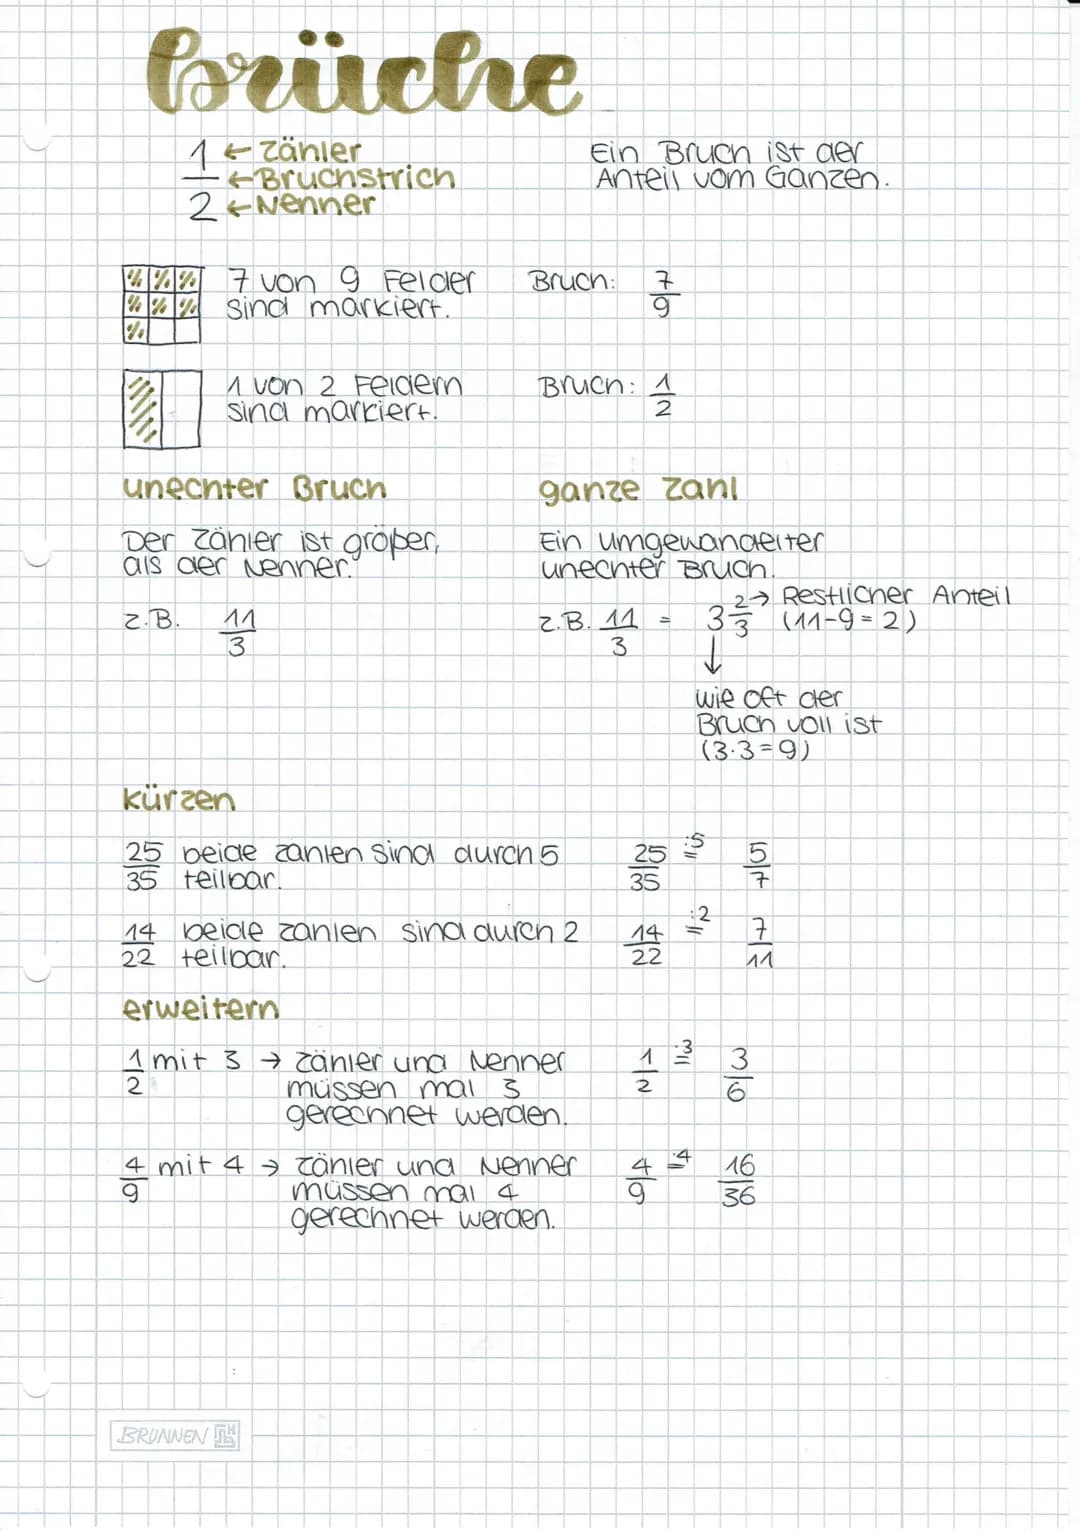 brüche
1 ← Zähler
— ← Bruchstrich
2 ← Nenner
Ein Bruch ist der
Anteil vom Ganzen.
7 von 9 Felder
sind markiert.
Bruch: 7/9
1 von 2 Feldern
sind markiert.
Bruch: 1/2
unechter Bruch
Der Zähler ist größer,
als der Nenner.
z.B. 11/3
ganze Zahl
Ein umgewandelter
unechter Bruch.
z.B. 11/3 = 3 2/3 → Restlicher Anteil
(11-9=2)
↓
wie oft der
Bruch voll ist
(3·3=9)
kürzen
25/35 beide Zahlen sind durch 5
teilbar.
25/35 :5= 5/7
14/22 beide Zahlen sind durch 2
teilbar.
14/22 :2= 7/11
erweitern
1/2 mit 3 → Zähler und Nenner
müssen mal 3
gerechnet werden.
1/2 ·3= 3/6
4/9 mit 4 → Zähler und Nenner
müssen mal 4
gerechnet werden.
4/9 ·4= 16/36
BRUNNEN